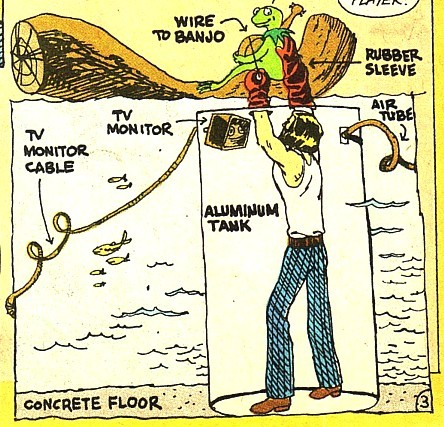 PLAYER.
WIRE
TO BANJO
RUBBER
SLEEVE
TV
MONITOR
AIR
TUBE
TV
MONITOR
CABLE
ALUMINUM
TANK
CONCRETE FLOOR
3